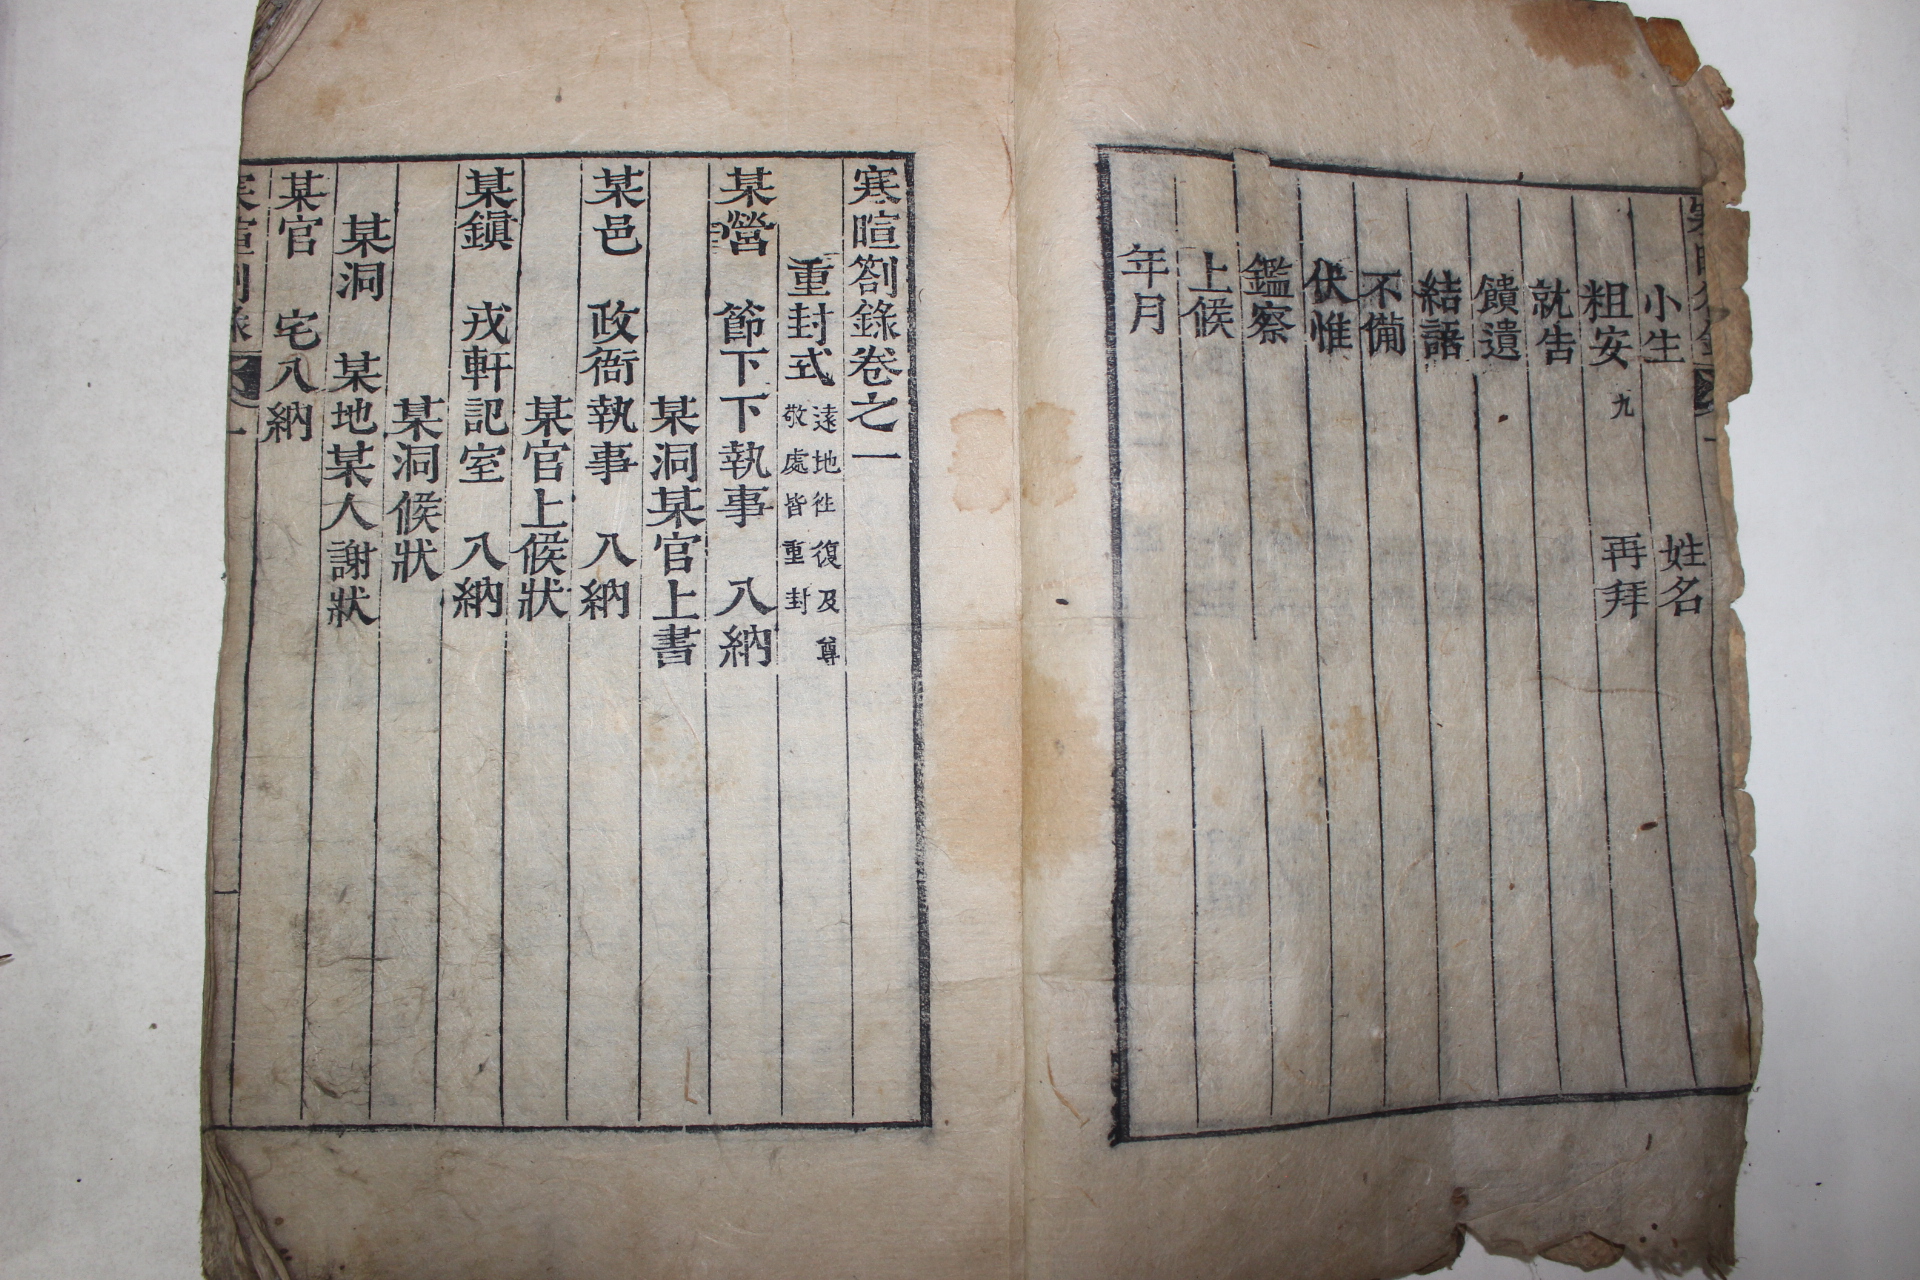 小生　姓名
粗安　九　再拜
就告
饋遺
結語
不備
伏惟
鑑察
上候
年月
寒暄劄錄卷之一
重封式　遠地徃復及尊敬處皆重封
某營　節下下執事　入納
某洞某官上書
某邑　政衙執事　入納
某官上候狀
某鎭　戎軒記室　入納
某洞候狀
某洞　某地某人謝狀
某官　宅入納
寒暄劄錄　一